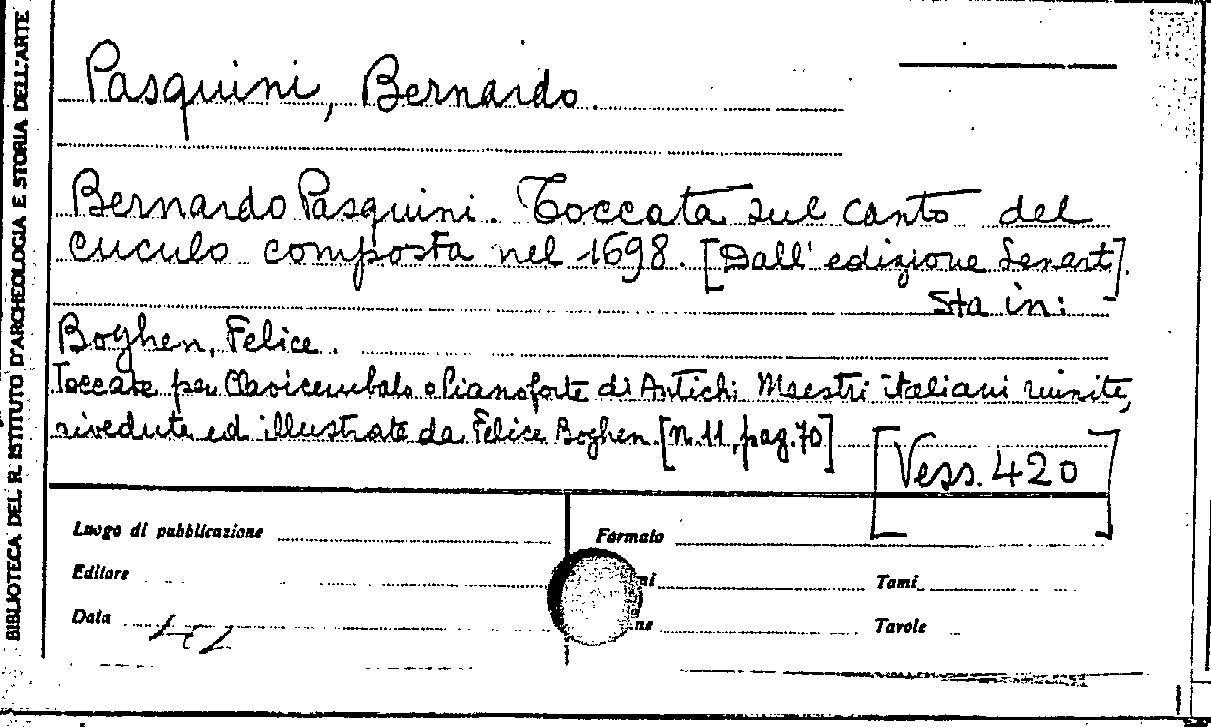 BIBLIOTECA DEL R. ISTITUTO D'ARCHEOLOGIA E STORIA DELL'ARTE
Pasquini, Bernardo.
Bernardo Pasquini. Toccata sul canto del
cuculo composta nel 1698. [Dall' edizione Senart].
Sta in:
Boghen, Felice.
Toccate per Clavicembalo o Pianoforte di Antichi Maestri italiani riunite,
rivedute ed illustrate da Felice Boghen. [N. 11, pag. 70]
[Vess. 420]
Luogo di pubblicazione
Formato
Editore
ni
Tomi
Data
ne
Tavole